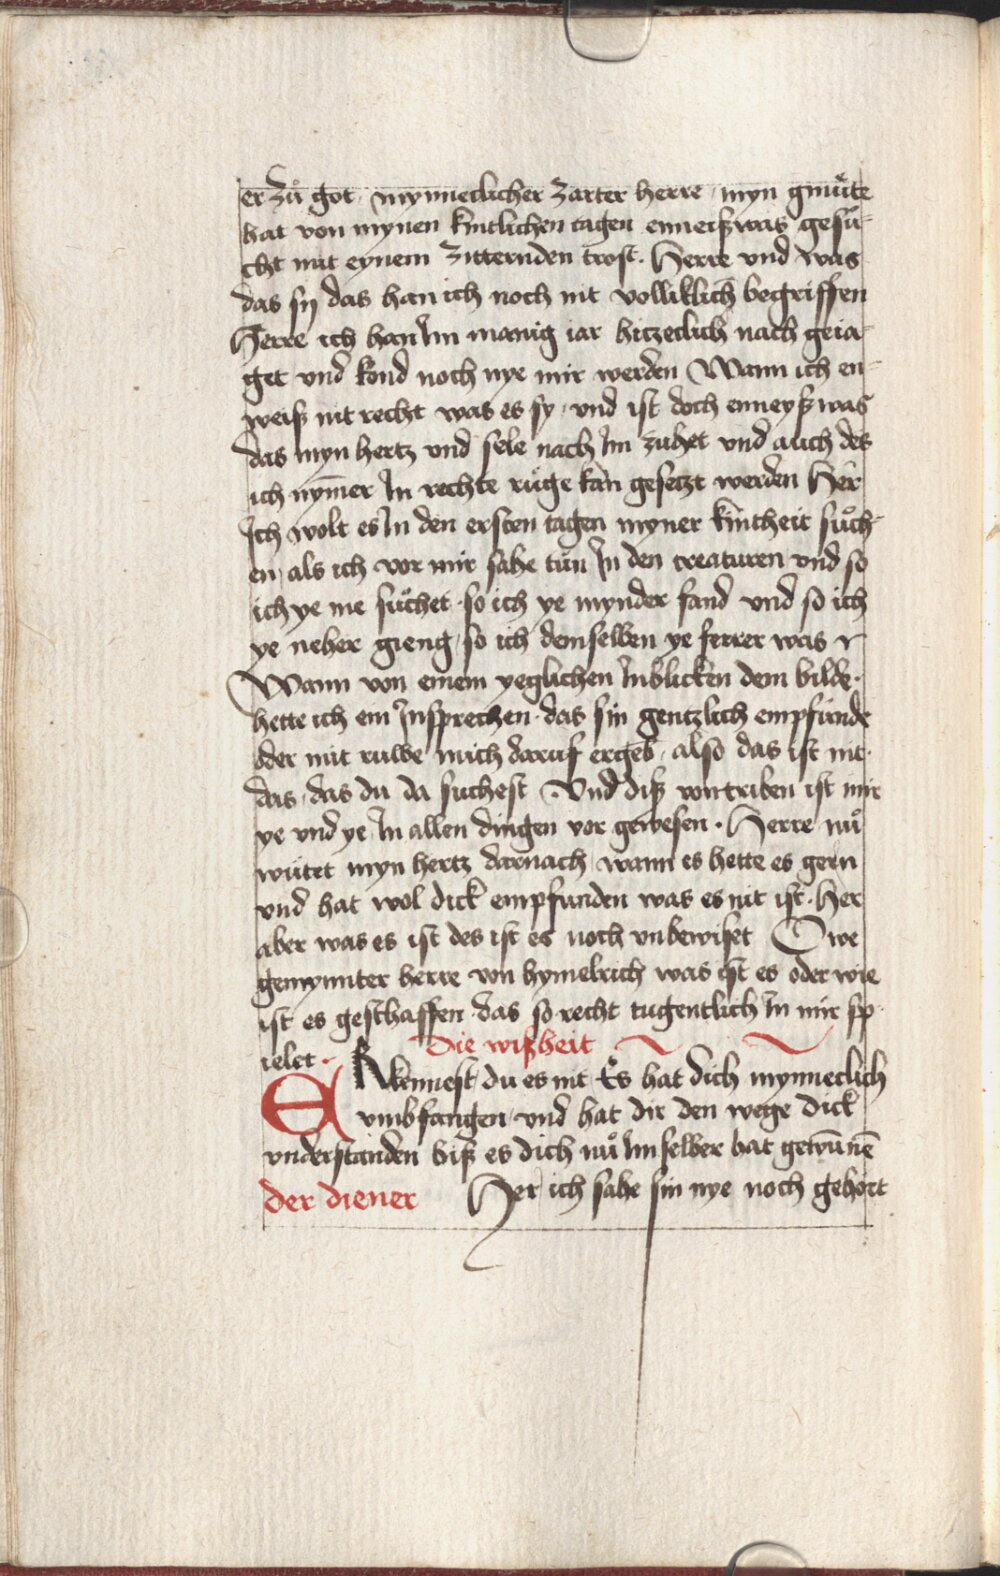 er zuͦ got · mynneclicher zarter herre · myn gmuͤte
hat von mynen kintlichen tagen enneißwas gesuͦ-
cht mit eynem zitternden trost · Herre vnd was
das sy das han ich noch nit volliklich begriffen
Herre ich han Im manig iar hitzeclich nach geia-
get vnd kond noch nye mir werden Wann ich en-
weiß nit recht was es sy · vnd ist doch enneyßwas
das myn hertz vnd sele nach Im zuhet vnd auch des
ich nym̄er In rechte ruͦge kan gesetzt werden Her
Ich wolt es In den ersten tagen myner kintheit suͦch-
en als ich vor mir sahe tuͦn In den creaturen vnd so
ich ye me suͦchet · so ich ye mynder fand vnd so ich
ye neher gieng · so ich demselben ye ferrer was
Wann von einem yeglichen Inblicken dem bilde ·
hette ich ein Insprechen · das sin gentzlich empfunde
oder mit ruwe mich daruf ergeb · also das ist nit ·
das · das du da suchest · Vnd diß vortriben ist mir
ye vnd ye In allen dingen vor gewesen · Herre nuͦ
wütet myn hertz darnach wann es hette es gern
vnd hat wol dick empfunden was es nit ist · Her
aber was es ist des ist es noch vnbewiset Owe
gemynnter herre von hymelrich was ist es oder wie
ist es geschaffen das so recht tugentlich In mir sp-
ielet · Die wißheit
ERkennest du es nit Es hat dich mynneclich
vmbfangen vnd hat dir den wege dick
vnderstanden biß es dich nuͦ Im selber hat gewūnē
der diener Her ich sahe sin nye noch gehort